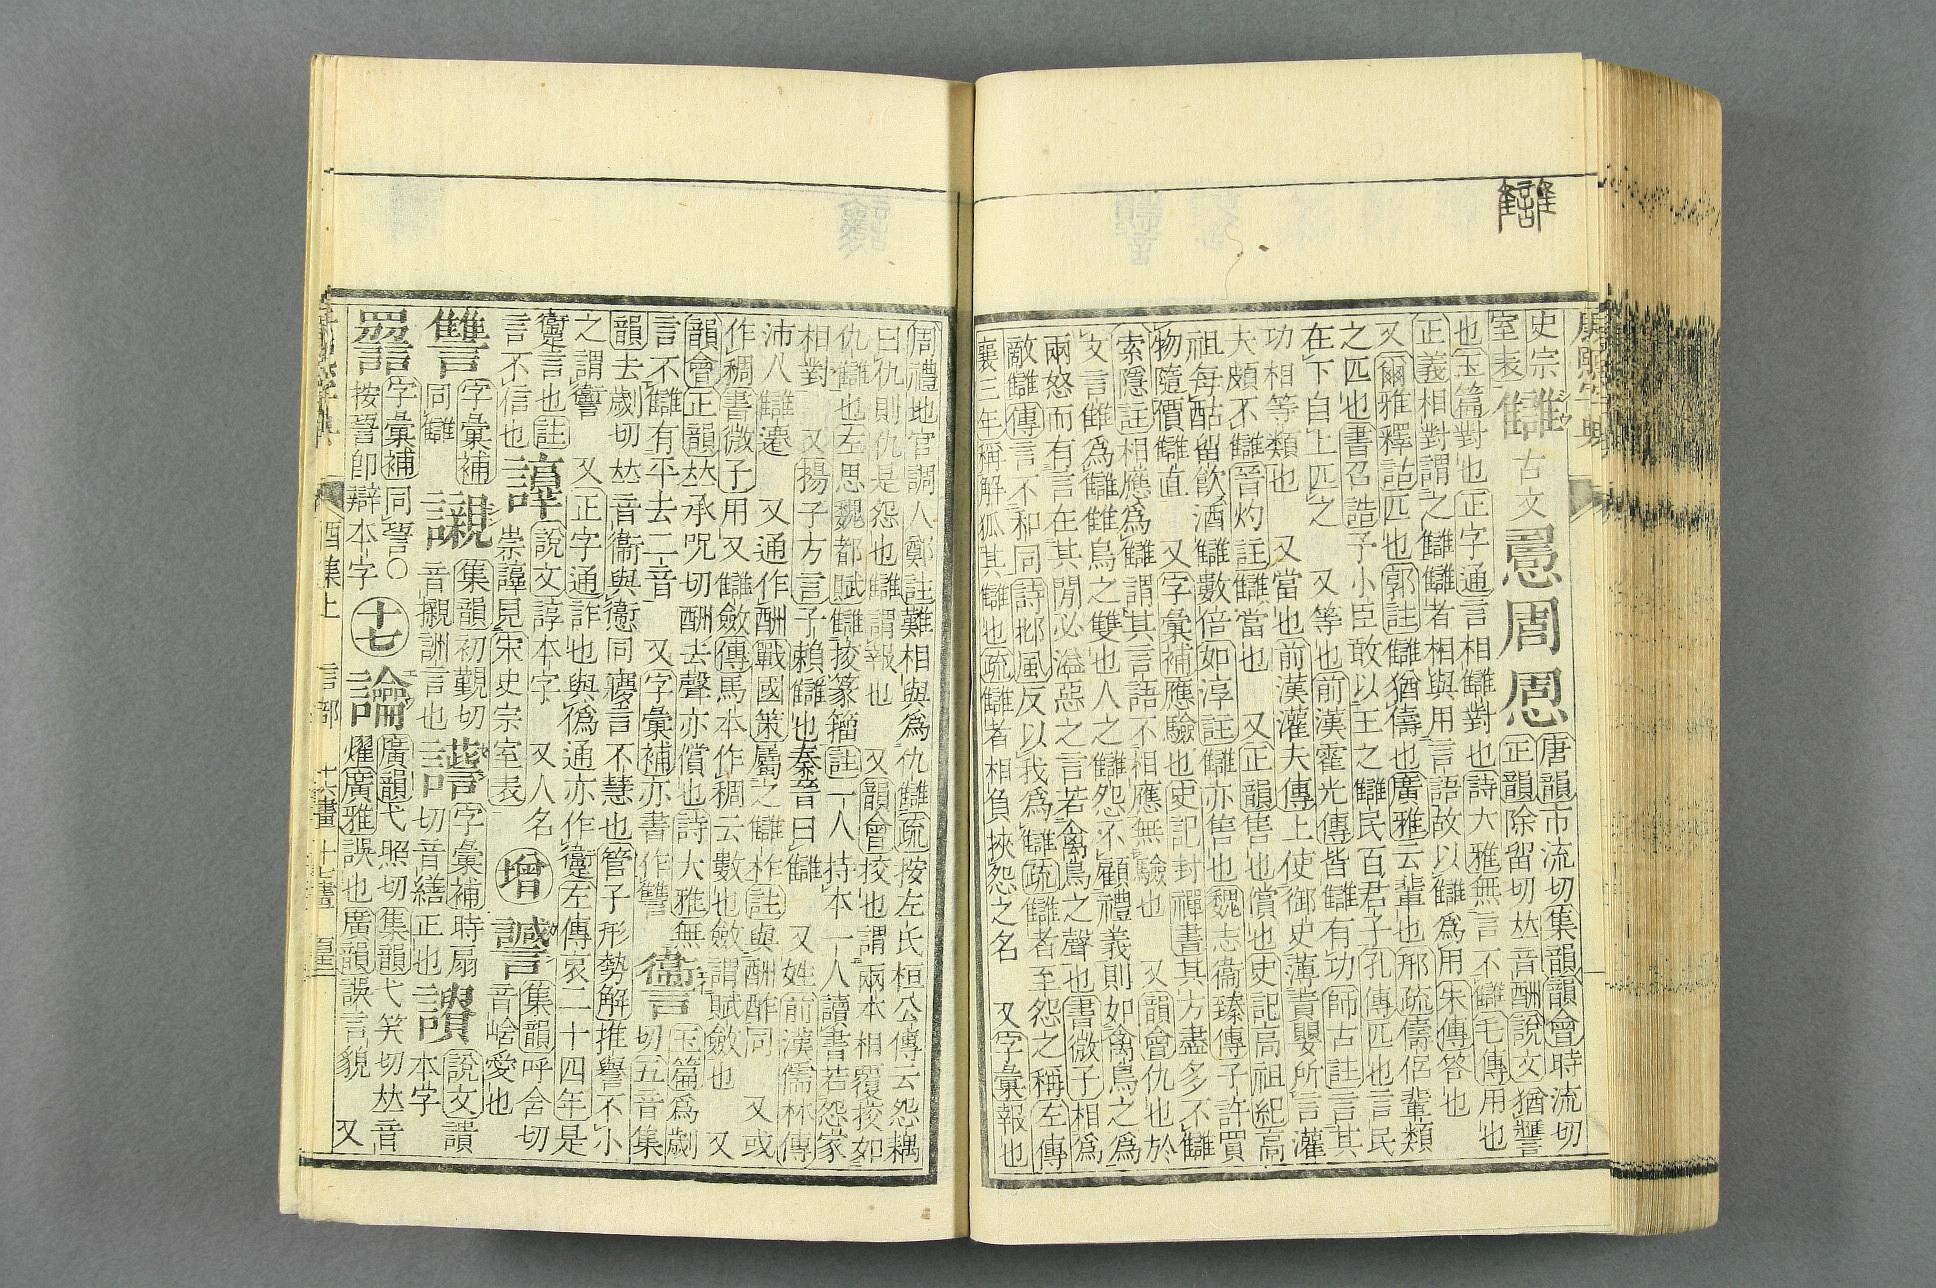 康熙字典
史宗
室表
讎 古文
唐韻市流切集韻韻會時流切
正韻除留切𠀤音酬說文猶𧭭
也玉篇對也正字通言相讎對也詩大雅無言不讎毛傳用也
正義相對謂之讎讎者相與用言語故以讎爲用朱傳答也
又爾雅釋詁匹也郭註讎猶儔也廣雅云輩也邢疏儔侶輩類
之匹也書召誥予小臣敢以王之讎民百君子孔傳匹也言民
在下自上匹之 又等也前漢霍光傳皆讎有功師古註言其
功相等類也 又當也前漢灌夫傳上使御史薄責嬰所言灌
夫頗不讎晉灼註讎當也 又正韻售也償也史記高祖紀高
祖每酤留飲酒讎數倍如淳註讎亦售也魏志衞臻傳子許買
物隨價讎直 又字彙補應驗也史記封禪書其方盡多不讎
索隱註相應爲讎謂其言語不相應無驗也 又韻會仇也於
文言雔爲讎雔鳥之雙也人之讎怨不顧禮義則如禽鳥之爲
兩怒而有言在其閒必溢惡之言若禽鳥之聲也書微子相爲
敵讎傳言不和同詩邶風反以我爲讎疏讎者至怨之稱左傳
襄三年稱解狐其讎也疏讎者相負挾怨之名 又字彙報也
周禮地官調人鄭註難相與爲仇讎疏按左氏桓公傳云怨耦
曰仇則仇是怨也讎謂報也 又韻會挍也謂兩本相覆挍如
仇讎也左思魏都賦讎挍篆籀註一人持本一人讀書若怨家
相對 又揚子方言予賴讎也秦晉曰讎 又姓前漢儒林傳
沛人讎遷 又通作酬戰國策屬之讎柞註與酬酢同 又或
作稠書微子用乂讎斂傳馬本作稠云數也斂謂賦斂也 又
韻會正韻𠀤承呪切酬去聲亦償也詩大雅無
言不讎有平去二音 又字彙補亦書作讐
玉篇爲劌
切五音集
韻去劌切𠀤音衞與𧗾同寱言不慧也管子形勢解推譽不小
之謂𧬨 又正字通詐也與僞通亦作𧗾左傳哀二十四年是
𧗾言也註
言不信也
譚
說文諄本字 又人名
崇譚見宋史宗室表
增
集韻呼含切
音㗋愛也
讐
字彙補
同讎
集韻初覲切
音櫬訓言也
字彙補時扇
切音繕正也
說文讀
本字
字彙補同讋○
按讋卽辯本字
十七
廣韻弋照切集韻弋笑切𠀤音
燿廣雅誤也廣韻誤言貌 又
酉集上 言部 十六畫 十七畫